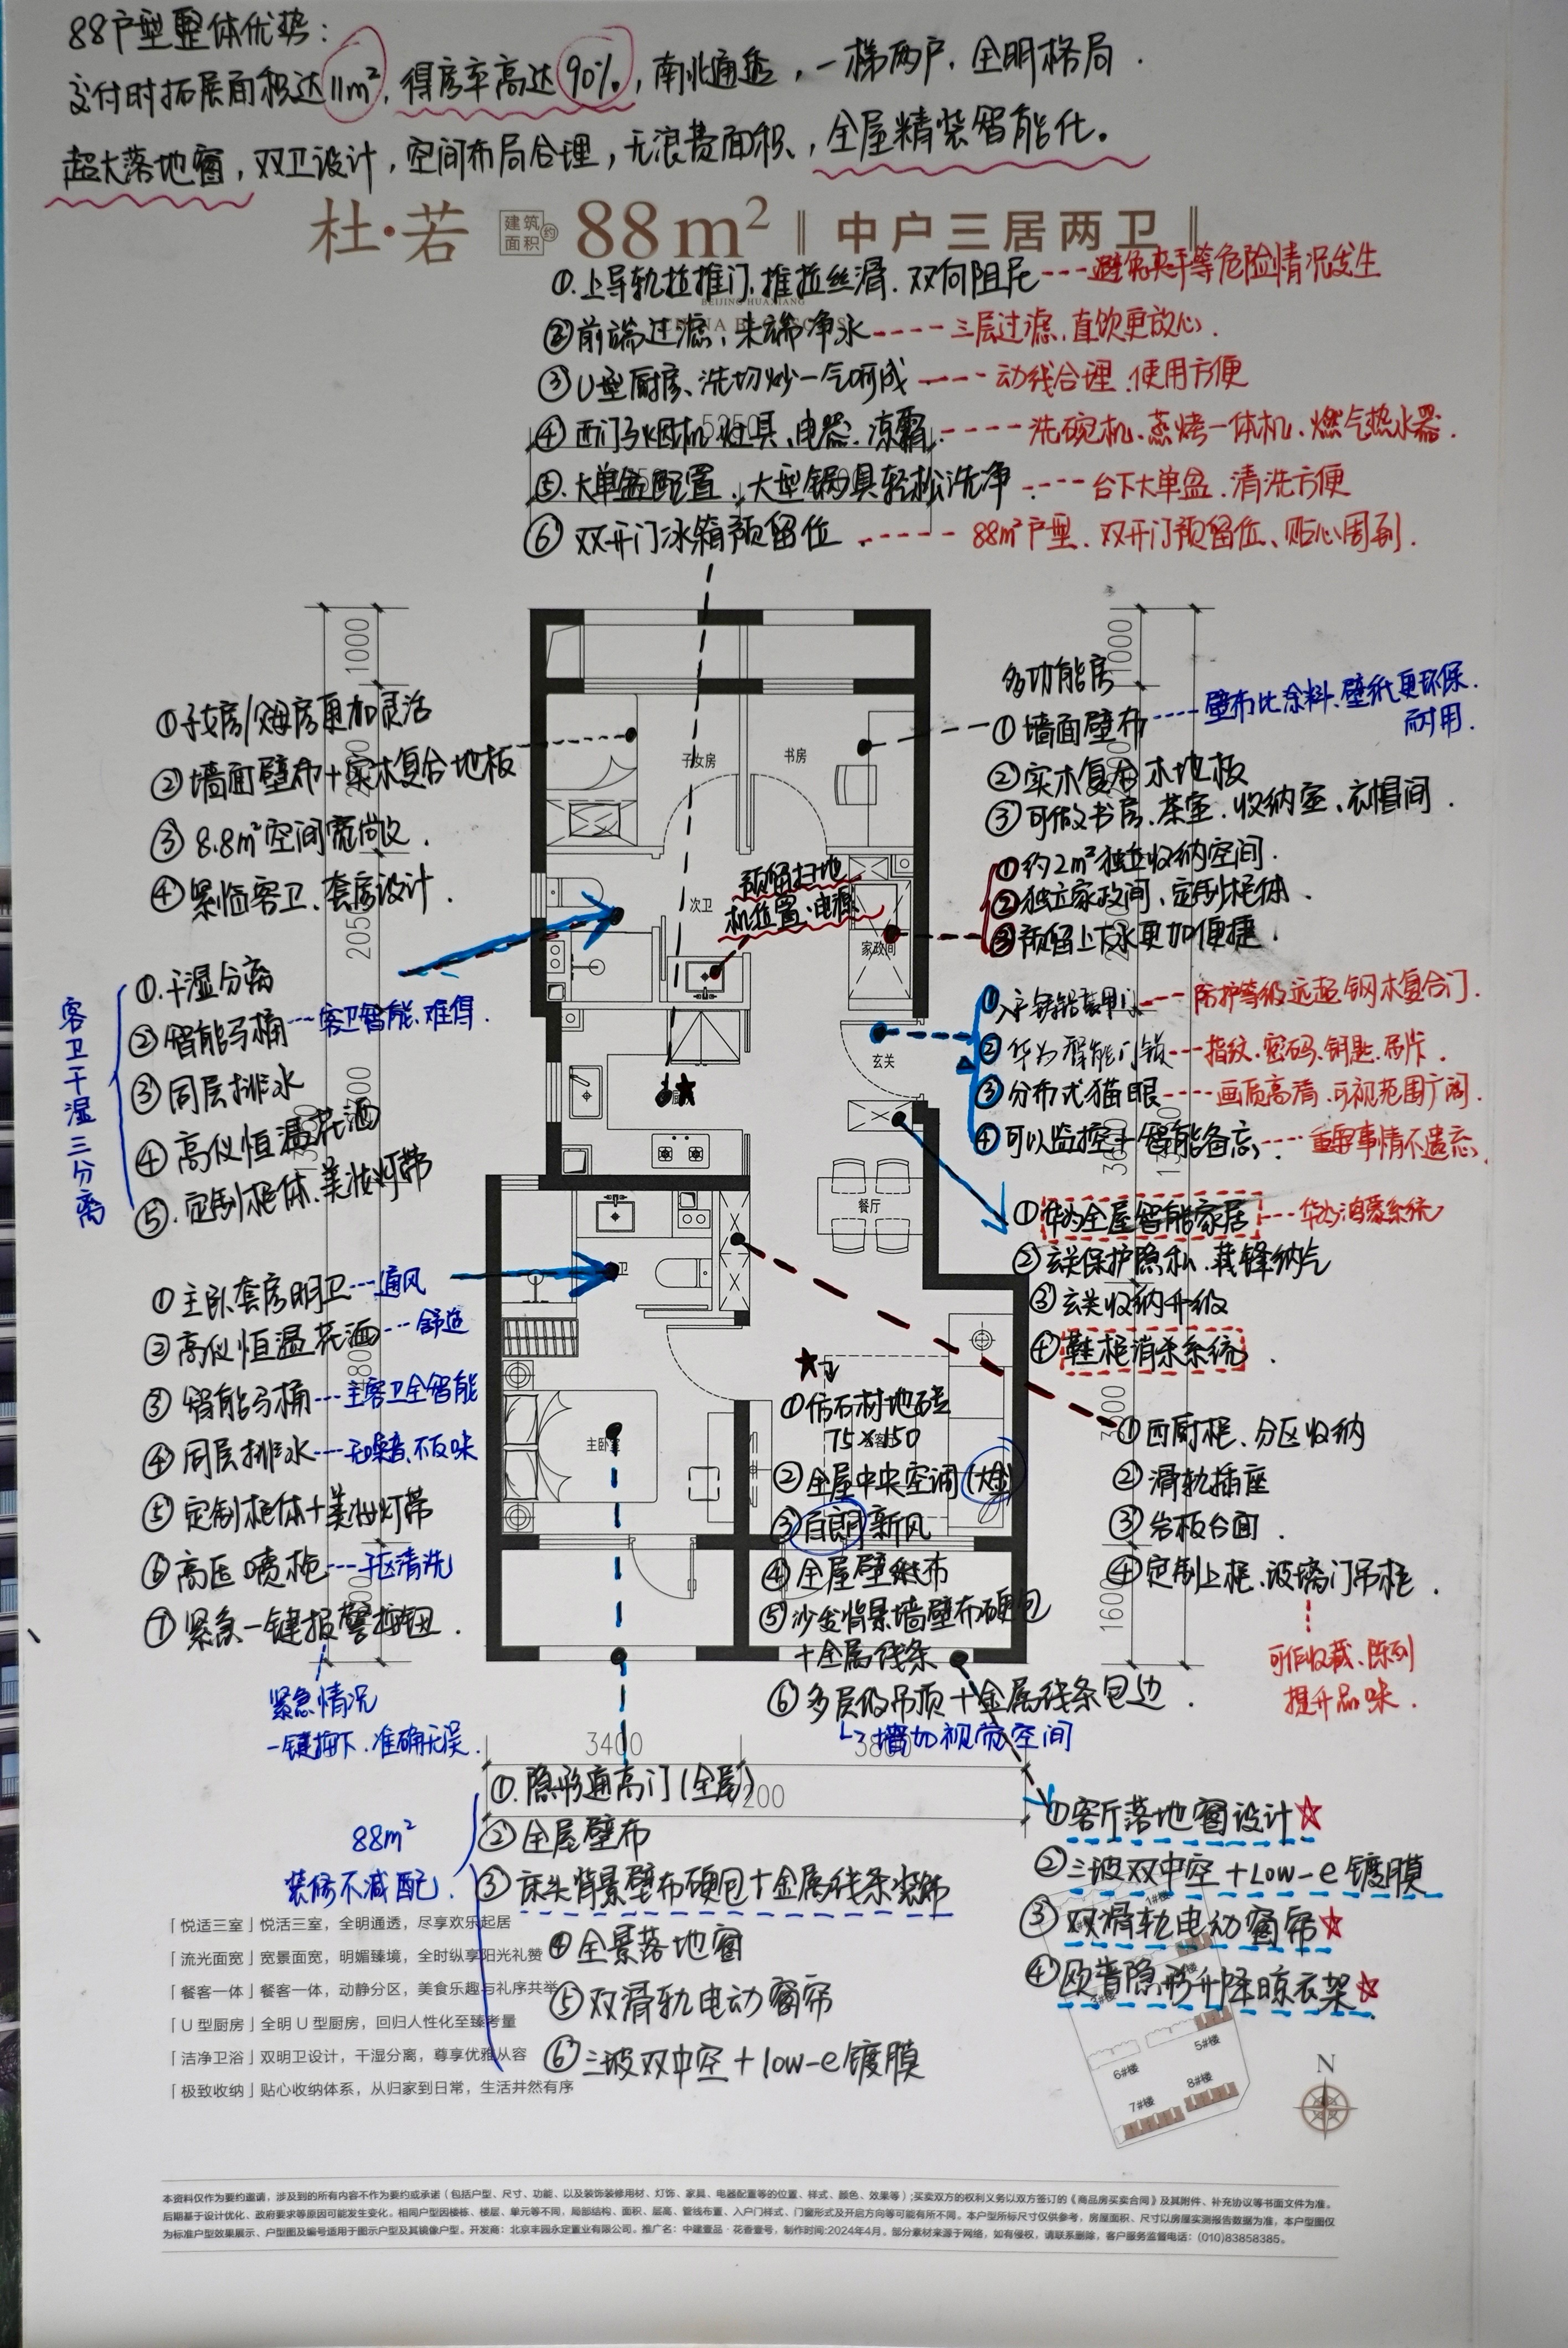 88户型整体优势：
交付时拓展面积达11m²，得房率高达90%，南北通透，一梯两户，全明格局．
超大落地窗，双卫设计，空间布局合理，无浪费面积，全屋精装智能化。
杜·若 建筑面积约 88m² 中户三居两卫
BEIJING HUAXIANG
①.上导轨拉推门，推拉丝滑．双向阻尼---避免夹手等危险情况发生
②前端过滤，末端净水----三层过滤，直饮更放心．
③U型厨房、洗切炒一气呵成----动线合理、使用方便
④西门子烟机、灶具、电器、凉霸----洗碗机、蒸烤一体机、燃气热水器．
⑤.大单盆配置．大型锅具轻松洗净----台下大单盆．清洗方便
⑥双开门冰箱预留位-----88m²户型．双开门预留位、贴心周到．
1000
1000
①子女房/父母房更加灵活
②墙面壁布+实木复合地板
③8.8m²空间宽敞．
④紧临客卫、套房设计．
多功能房
①墙面壁布----壁布比涂料、壁纸更环保．
耐用．
②实木复合木地板
③可做书房、茶室、收纳室、衣帽间．
子女房
书房
①约2m²独立收纳空间．
②独立家政间，定制柜体．
③预留上下水更加便捷．
次卫
预留扫地
机位置·电源
家政间
205
客卫干湿三分离
①.干湿分离
②智能马桶---客卫智能．难得．
③同层排水
④高仪恒温花洒
⑤.定制柜体、美妆灯带
①入户铸铝装甲门---防护等级远超钢木复合门．
②华为智能门锁---指纹、密码、钥匙、吊卡．
③分布式猫眼----画质高清，可视范围广阔．
④可以监控+智能备忘．---重要事情不遗忘．
玄关
餐厅
①华为全屋智能家居---华为鸿蒙系统
②玄关保护隐私、藏锋纳气
③玄关收纳升级
④鞋柜消杀系统．
①主卧套房明卫---通风
②高仪恒温花洒---舒适
③智能马桶---主客卫全智能
④同层排水---无噪音、不反味
⑤定制柜体+美妆灯带
⑥高压喷枪---马区清洗
⑦紧急一键报警按钮．
紧急情况
一键按下．准确无误．
主卧室
①仿石材地砖
75×150
②全屋中央空调(大金)
③百朗新风
④全屋壁纸布
⑤沙发背景墙壁布硬包
+金属线条
⑥多层级吊顶+金属线条包边．
↳增加视觉空间
①西厨柜、分区收纳
②滑轨插座
③岩板台面．
④定制上柜、玻璃门吊柜．
可作收藏、陈列
提升品味．
1600
3400
7200
88m²
装修不减配．
①.隐形通高门(全屋)
②全屋壁布
③床头背景壁布硬包+金属线条装饰
④全景落地窗
⑤双滑轨电动窗帘
⑥三玻双中空+low-e镀膜
①客厅落地窗设计☆
②三玻双中空+low-e镀膜
③双滑轨电动窗帘☆
④欧普隐形升降晾衣架☆
「悦适三室」悦活三室，全明通透，尽享欢乐起居
「流光面宽」宽景面宽，明媚臻境，全时纵享阳光礼赞
「餐客一体」餐客一体，动静分区，美食乐趣与礼序共举
「U型厨房」全明U型厨房，回归人性化至臻考量
「洁净卫浴」双明卫设计，干湿分离，尊享优雅从容
「极致收纳」贴心收纳体系，从归家到日常，生活井然有序
1#楼
5#楼
6#楼
8#楼
7#楼
N
本资料仅作为要约邀请，涉及到的所有内容不作为要约或承诺（包括户型、尺寸、功能、以及装饰装修用材、灯饰、家具、电器配置等的位置、样式、颜色、效果等）;买卖双方的权利义务以双方签订的《商品房买卖合同》及其附件、补充协议等书面文件为准。
后期基于设计优化、政府要求等原因可能发生变化。相同户型因楼栋、楼层、单元等不同，局部结构、面积、层高、管线布置、入户门样式、门窗形式及开启方向等可能有所不同。本户型所标尺寸仅供参考，房屋面积、尺寸以房屋实测报告数据为准，本户型图仅
为标准户型效果展示、户型图及编号适用于图示户型及其镜像户型。开发商：北京丰园永定置业有限公司。推广名：中建壹品·花香壹号，制作时间:2024年4月。部分素材来源于网络，如有侵权，请联系删除，客户服务监督电话：(010)83858385。